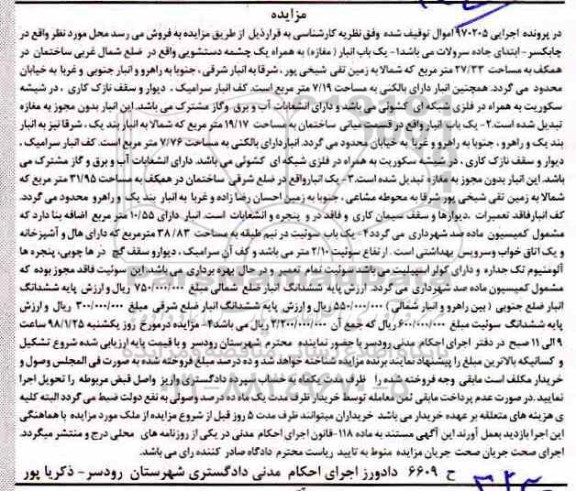 مزایده
در پرونده اجرایی ۹۷۰۲۰۵ اموال توقیف شده وفق نظریه کارشناسی به قرارذیل از طریق مزایده به فروش می رسد محل مورد نظر واقع در
چابکسر- ابتدای جاده سرولات می باشد۱- یک باب انبار (مغازه) به همراه یک چشمه دستشویی واقع در ضلع شمال غربی ساختمان در
همکف به مساحت ۲۷/۳۳ متر مربع که شمالا به زمین تقی شیخی پور، شرقا به انبار شرقی، جنوبا به راهرو و انبار جنوبی و غربا به خیابان
محدود می گردد. همچنین انبار دارای بالکنی به مساحت ۷/۱۹ متر مربع است. کف انبار سرامیک، دیوار و سقف نازک کاری، در شیشه
سکوریت به همراه در فلزی شبکه ای کشوئی می باشد و دارای انشعابات آب و برق وگاز مشترک می باشد. این انبار بدون مجوز به مغازه
تبدیل شده است.۲- یک باب انبار واقع در قسمت میانی ساختمان به مساحت ۱۹/۱۷ متر مربع که شمالا به انبار بند یک، شرقا نیز به انبار
بند یک و راهرو، جنوبا به راهرو و غربا به خیابان محدود می گردد. انباردارای بالکنی به مساحت ۷/۷۶ متر مربع است. کف انبار سرامیک،
دیوار و سقف نازک کاری، در شیشه سکوریت به همراه در فلزی شبکه ای کشوئی می باشد. دارای انشعابات آب و برق و گاز مشترک می
باشد. این انبار بدون مجوز به مغازه تبدیل شده است.۳- یک انبارواقع در ضلع شرقی ساختمان در همکف به مساحت ۳۱/۹۵ متر مربع که
شمالا به زمین تقی شیخی پور شرقا به محوطه مشاعی، جنوبا به زمین احسان رضا زاده و غربا به انبار بند یک و راهرو محدود می گردد.
کف انبارفاقد تعمیرات .دیوارها و سقف سیمان کاری و فاقد در و پنجره و انشعابات است. انبار دارای ۱۰/۵۵ متر مربع اضافه بنا دارد که
مشمول کمیسیون ماده صد شهرداری می گردد۴- یک باب سوئیت در نیم طبقه به مساحت ۳۸/۸۳ مترمربع که دارای هال و آشپزخانه
و یک اتاق خواب وسرویس بهداشتی است. ارتفاع سوئیت ۲/۱۰ متر می باشد و کف آن سرامیک، دیوارو سقف گچ در ها چوبی، پنجره ها
آلومنیوم تک جداره و دارای کولر اسپیلیت می باشد سوئیت تمام تعمیر و در حال بهره برداری می باشد. این سوئیت فاقد مجوز بوده که
مشمول کمیسیون ماده صد شهرداری می گردد ارزش پایه ششدانگ انبار ضلع شمالی مبلغ ۷۵۰/۰۰۰/۰۰۰ ریال و ارزش پایه ششدانگ
انبار ضلع جنوبی (بین راهرو و انبار شمالی) ۵۵۰/۰۰۰/۰۰۰ ریال و ارزش پایه ششدانگ انبار ضلع شرقی مبلغ ۳۰۰/۰۰۰/۰۰۰ ریال و ارزش
پایه ششدانگ سوئیت مبلغ ۶۰۰/۰۰۰/۰۰۰ ریال که جمع آن ۲/۲۰۰/۰۰۰/۰۰۰ ریال می باشد۴- مزایده درمورخ روز یکشنبه ۹۸/۱/۲۵ ساعت
۹ الی ۱۱ صبح در دفتر اجرای احکام مدنی رودسر با حضور نماینده محترم شهرستان رودسر و با قیمت پایه ارزیابی شده شروع تشکیل
و کسانیکه بالاترین مبلغ را پیشنهاد نمایند برنده مزایده شناخته خواهد شد و ده درصد مبلغ فروخته شده به صورت فی المجلس وصول و
خریدار مکلف است مابقی وجه فروخته شده را ظرف مدت یکماه به حساب سپرده دادگستری واریز واصل قبض مربوطه را تحویل اجرا
نمایید .در صورت عدم پرداخت مابقی ثمن معامله توسط خریدار ظرف مدت یک ماه ده درصد وصولی به نفع دولت ضبط می گردد البته کلیه
ی هزینه های متعلقه بر عهده خریدار می باشد خریداران میتوانند ظرف مدت ۵ روز قبل از شروع مزایده از ملک مورد مزایده با هماهنگی
این اجرا بازدید بعمل آورند این آگهی مستند به ماده ۱۱۸-قانون اجرای احکام مدنی در یکی از روزنامه های محلی درج و منتشر میگردد.
اجرای صحت جریان صحت جریان مزایده منوط به تایید ریاست محترم دادگاه صادر کننده رای می باشد.
ح ۶۶۰۹ دادورز اجرای احکام مدنی دادگستری شهرستان رودسر- ذکریا پور